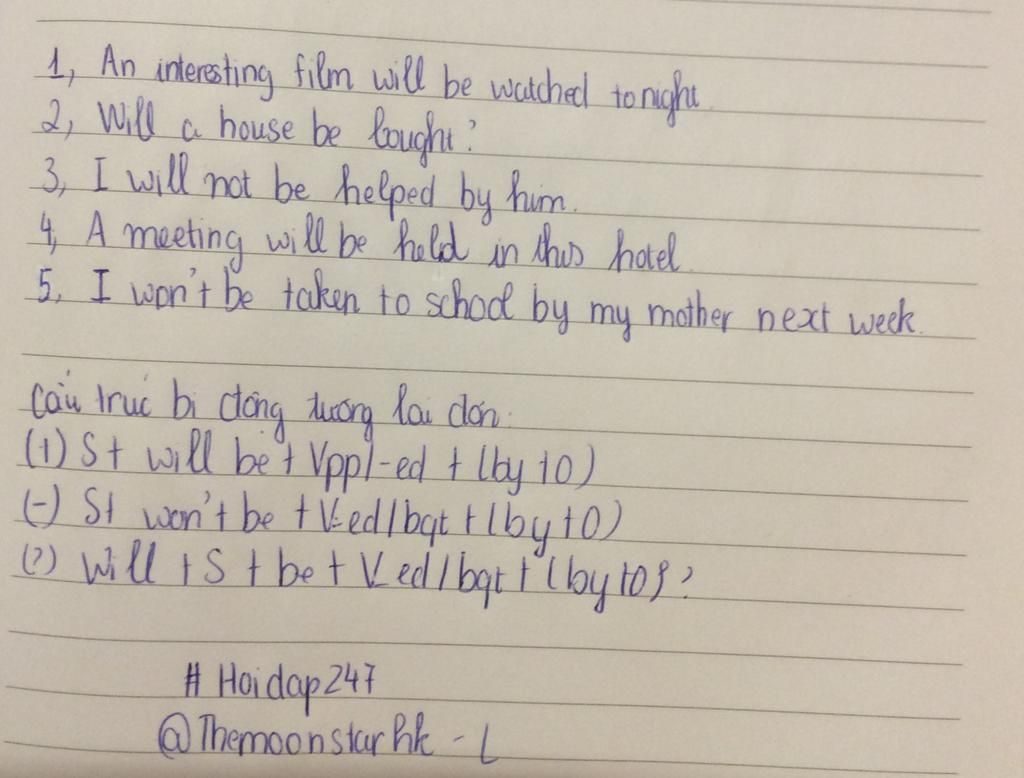 1, An interesting film will be watched tonight.
2, Will a house be bought?
3, I will not be helped by him.
4, A meeting will be held in this hotel
5, I won't be taken to school by my mother next week.
Cấu trúc bị động tương lai đơn:
(+) S+ will be + Vpp/-ed + (by +O)
(-) S+ won't be + V-ed/bqt + (by +O)
(?) Will + S + be + V_ed/bqt + (by +O)?
# Hoidap247
@Themoonstarhk - L